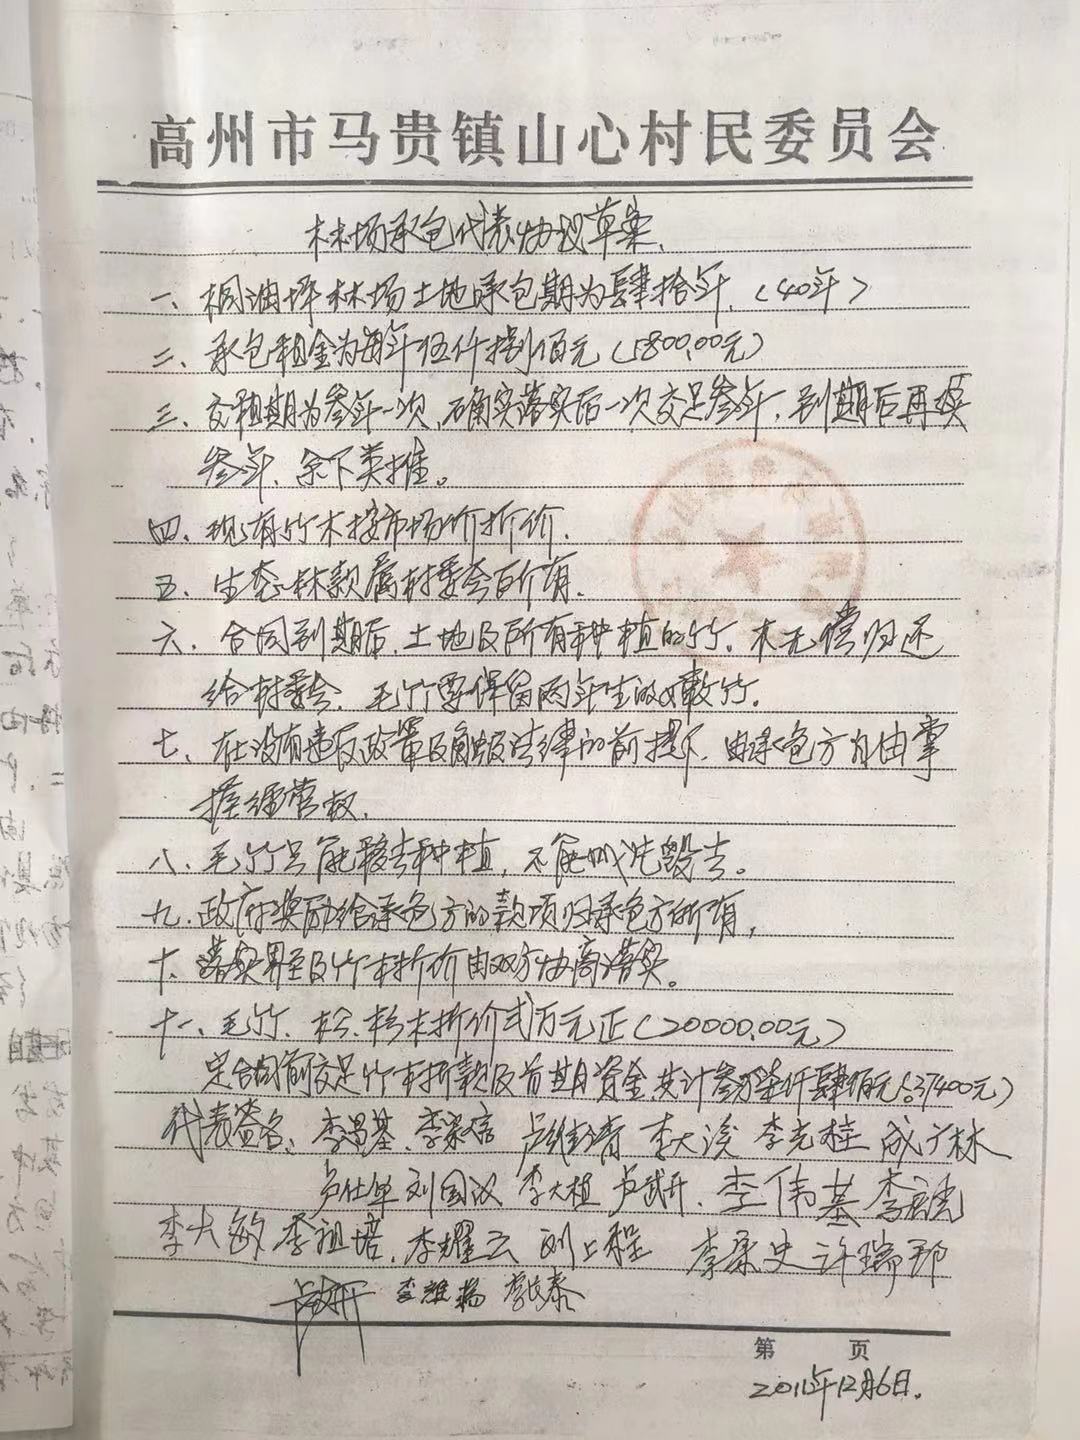 高州市马贵镇山心村民委员会
林场承包代表协议草案.
一、桐油坪林场土地承包期为肆拾年.(40年)
二、承包租金为每年伍仟捌佰元(5800.00元)
三、交租期为叁年一次,确实落实后一次交足叁年,到期后再续
叁年、余下类推。
四、现有竹木按市场价折价.
五、生态林款属村委会所有.
六、合同到期后.土地及所有种植的竹.木无偿归还
给村委会、毛竹要保留两年生的嫩竹.
七、在没有违反政策及触犯法律的前提下.由承包方自由掌
握经营权.
八、毛竹只能移去种植,不能毁去。
九.政府奖励给承包方的款项归承包方所有,
十、落实界至及竹木折价由双方协商落实。
十一、毛竹、松、杉木折价弍万元正(20000.00元)
定合同前交足竹木折款及首期资金.共计叁万柒仟肆佰元(37400元)
代表签名:李昌基、李家信 李大浚 李克桂 成广林
刘国汉 李大桓 卢武升.李伟基
李大敏 李祖培.李耀云 刘上程 李荣史 许瑞邦
李雄扬
第 页
2011年12月6日.